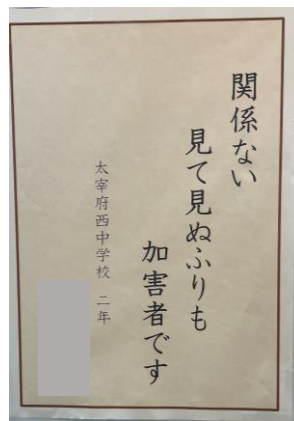 関係ない
見て見ぬふりも
加害者です
太宰府西中学校 二年